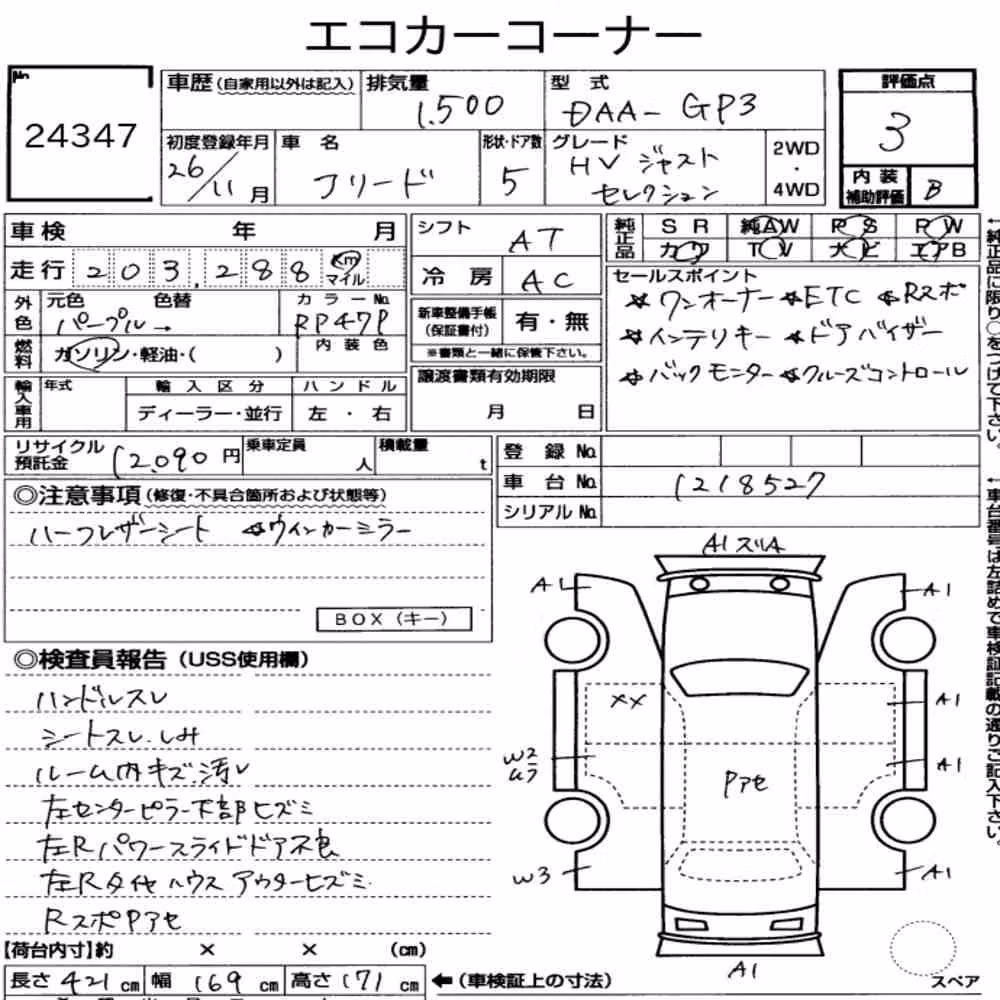 エコカーコーナー
No.
24347
車歴(自家用以外は記入)
排気量
1,500
型 式
DAA- GP3
評価点
3
初度登録年月
26/11月
車 名
フリード
形状・ドア数
5
グレード
HV ジャスト
セレクション
2WD
・
4WD
内 装
補助評価
B
車検 年 月
走行 203,288 km
マイル
シフト
AT
冷 房
AC
純正品
S R 純AW P S P W
カワ T V 大ビ エアB
外色
元色 色替
パープル→
カラーNo.
RP47P
燃料
ガソリン・軽油・( )
内 装 色
新車整備手帳
(保証書付)
有・無
※書類と一緒に保管下さい。
セールスポイント
☆ワンオーナー ☆ETC ☆Rスポ
☆インテリキー ☆ドアバイザー
☆バックモニター ☆クルーズコントロール
輸入車用
年式
輸 入 区 分
ディーラー・並行
ハ ン ド ル
左 ・ 右
譲渡書類有効期限
月 日
リサイクル
預託金
12,090 円
乗車定員
人
積載量
t
登 録 No.
車 台 No.
1218527
シリアル No.
←純正品に限り○をつけて下さい。
←車台番号は左詰めで車検証記載の通りご記入下さい。
◎注意事項(修復・不具合箇所および状態等)
ハーフレザーシート ☆ウィンカーミラー
BOX(キー)
◎検査員報告(USS使用欄)
ハンドルスレ
シートスレ.しみ
ルーム内キズ.汚レ
左センターピラー下部ヒズミ
左Rパワースライドドア不良
左Rタイヤハウスアウターヒズミ
RスポPアセ
A1 スリA
A1
A1
XX
A1
W2
A1
Pアセ
W3
A1
A1
スペア
【荷台内寸】約 × × (cm)
長さ 421 cm 幅 169 cm 高さ 171 cm
←(車検証上の寸法)